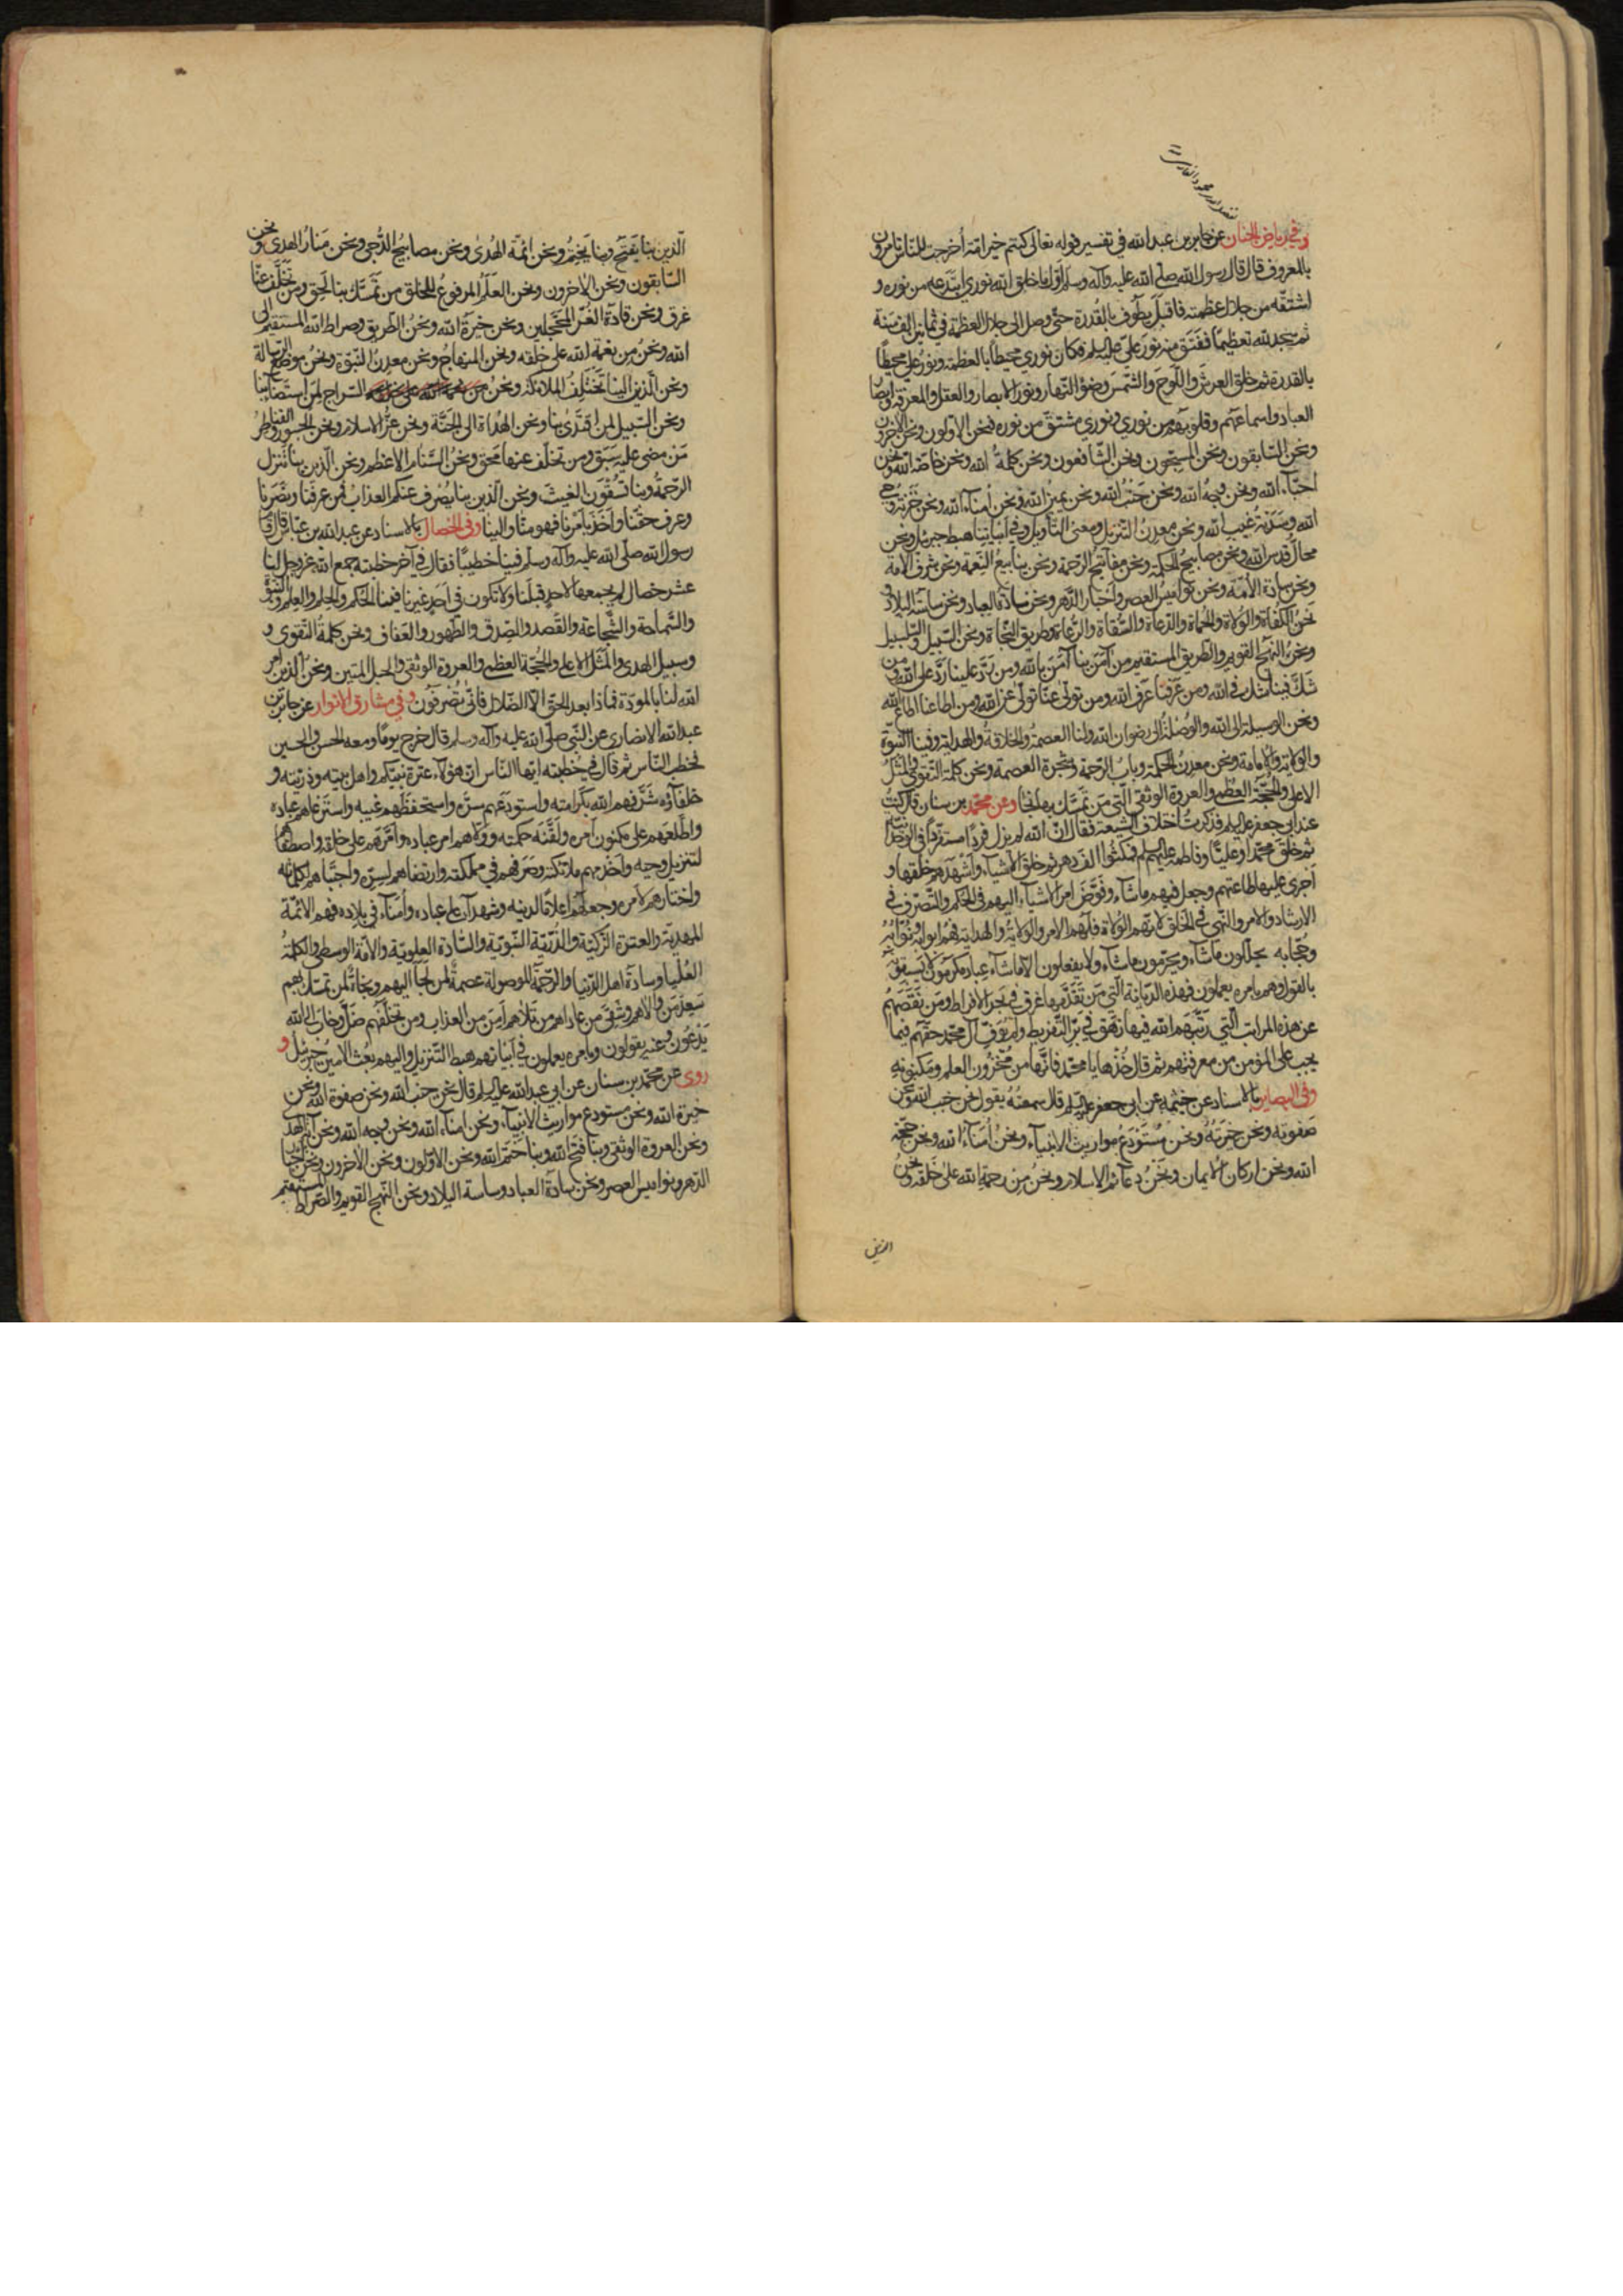 وفي رياض الجنان عن جابر بن عبد الله في تفسير قوله تعالى كنتم خير امة أخرجت للناس تامرون
بالمعروف قال قال رسول الله صلى الله عليه وآله وسلم اول ما خلق الله نوري ابتدعه من نوره و
اشتقه من جلال عظمته فاقبل يطوف بالقدرة حتى وصل الى جلال العظمة في ثمانين الف سنة
ثم سجد لله تعظيما ففتق منه نور علي عليه السلم فكان نوري محيطا بالعظمة ونور علي محيطا
بالقدرة ثم خلق العرش واللوح والشمس وضوء النهار ونور الابصار والعقل والمعرفة وابصار
العباد واسماعهم وقلوبهم من نوري ونوري مشتق من نوره فنحن الاولون ونحن الاخرون
ونحن السابقون ونحن المسبحون ونحن الشافعون ونحن كلمة الله ونحن خاصة الله ونحن
احباء الله ونحن وجه الله ونحن جنب الله ونحن يمين الله ونحن أمناء الله ونحن خزنة وحي
الله وسدنة غيب الله ونحن معدن التنزيل ومعنى التأويل وفي ابياتنا هبط جبرئيل ونحن
محال قدس الله ونحن مصابيح الحكمة ونحن مفاتيح الرحمة ونحن ينابيع النعمة ونحن شرف الامة
ونحن سادة الأئمة ونحن نواميس العصر واحبار الدهر ونحن سادة العباد ونحن ساسة البلاد و
نحن الكفاة والولاة والحماة والدعاة والسقاة والرعاة وطريق النجاة ونحن السبيل والسلسبيل
ونحن النهج القويم والطريق المستقيم من آمن بنا آمن بالله ومن رد علينا رد على الله ومن
شك فينا شك في الله ومن عرفنا عرف الله ومن تولى عنا تولى عن الله ومن اطاعنا اطاع الله
ونحن الوسيلة الى الله والوصلة الى رضوان الله ولنا العصمة والخلافة والهداية وفينا النبوة
والولاية والامامة ونحن معدن الحكمة وباب الرحمة وشجرة العصمة ونحن كلمة التقوى والمثل
الاعلى والحجة العظمى والعروة الوثقى التي من تمسك بها نجا وعن محمد بن سنان قال كنت
عند ابي جعفر عليه السلم فذكرت اختلاف الشيعة فقال ان الله لم يزل فردا متفردا في الوحدانية
ثم خلق محمدا وعليا وفاطمة عليهم السلم فمكثوا الف دهر ثم خلق الاشياء واشهدهم خلقها و
أجرى عليها طاعتهم وجعل فيهم ما شاء وفوض امر الاشياء اليهم في الحكم والتصرف في
الارشاد والامر والنهي في الخلق لانهم الولاة فلهم الامر والولاية والهداية فهم ابوابه ونوابه
وحجابه يحللون ما شاء ويحرمون ما شاء ولا يفعلون الا ما شاء عباد مكرمون لا يسبقونه
بالقول وهم بامره يعملون فهذه الديانة التي من تقدمها غرق في بحر الافراط ومن نقصهم
عن هذه المراتب التي رتبهم الله فيها زهق في بر التفريط ولم يوف آل محمد حقهم فيما
يجب على المؤمن من معرفتهم ثم قال خذها يا محمد فانها من مخزون العلم ومكنونه
وفي البصاير بالاسناد عن خيثمة عن ابي جعفر عليه السلم قال سمعته يقول نحن جنب الله ونحن
صفوته ونحن خيرته ونحن مستودع مواريث الانبياء ونحن أمناء الله ونحن حجة
الله ونحن اركان الايمان ونحن دعائم الاسلام ونحن من رحمة الله على خلقه ونحن
الذين
الذين بنا يفتح وبنا يختم ونحن ائمة الهدى ونحن مصابيح الدجى ونحن منار الهدى ونحن
السابقون ونحن الاخرون ونحن العلم المرفوع للخلق من تمسك بنا لحق ومن تخلف عنا
غرق ونحن قادة الغر المحجلين ونحن خيرة الله ونحن الطريق وصراط الله المستقيم الى
الله ونحن من نعمة الله على خلقه ونحن المنهاج ونحن معدن النبوة ونحن موضع الرسالة
ونحن الذين الينا تختلف الملائكة ونحن السراج لمن استضاء بنا
ونحن السبيل لمن اقتدى بنا ونحن الهداة الى الجنة ونحن عز الاسلام ونحن الجسور والقناطر
من مضى عليه سبق ومن تخلف عنها محق ونحن السنام الاعظم ونحن الذين بنا تنزل
الرحمة وبنا تسقون الغيث ونحن الذين بنا يصرف عنكم العذاب فمن عرفنا ونصرنا
وعرف حقنا واخذ بامرنا فهو منا والينا وفي الخصال بالاسناد عن عبد الله بن عباس قال قام
رسول الله صلى الله عليه وآله وسلم فينا خطيبا فقال في آخر خطبته جمع الله عز وجل لنا
عشر خصال لم يجمعها لاحد قبلنا ولا تكون في احد غيرنا فينا الحكم والحلم والعلم والنبوة
والسماحة والشجاعة والقصد والصدق والطهور والعفاف ونحن كلمة التقوى و
وسبيل الهدى والمثل الاعلى والحجة العظمى والعروة الوثقى والحبل المتين ونحن الذين امر
الله لنا بالمودة فماذا بعد الحق الا الضلال فانى تصرفون وفي مشارق الانوار عن جابر بن
عبد الله الانصاري عن النبي صلى الله عليه وآله وسلم قال خرج يوما ومعه الحسن والحسين
فخطب الناس ثم قال في خطبته ايها الناس ان هؤلاء عترة نبيكم واهل بيته وذريته و
خلفاؤه شرفهم الله بكرامته واستودعهم سره واستحفظهم غيبه واسترعاهم عباده
واطلعهم على مكنون أمره ولقنه حكمته وولاهم امر عباده وأمرهم على خلقه واصطفاهم
لتنزيل وحيه واخدمهم ملائكته وصرفهم في مملكته وارتضاهم لسره واجتباهم لكلماته
واختارهم لأمره وجعلهم أعلاما لدينه وشهداء على عباده وأمناء في بلاده فهم الائمة
المهدية والعترة الزكية والذرية النبوية والسادة العلوية والامة الوسطى والكلمة
العليا وسادة اهل الدنيا والرحمة الموصولة عصمة لمن لجأ اليهم ونجاة لمن تمسك بهم
سعد من والاهم وشقي من عاداهم من تلاهم أمن من العذاب ومن تخلفهم ضل وخاب الى الله
يدعون وعنه يقولون وبامره يعملون في ابياتهم هبط التنزيل واليهم بعث الامين جبرئيل و
روى عن محمد بن سنان عن ابي عبد الله عليه السلم قال نحن جنب الله ونحن صفوة الله ونحن
خيرة الله ونحن مستودع مواريث الانبياء ونحن امناء الله ونحن وجه الله ونحن آية الهدى
ونحن العروة الوثقى وبنا فتح الله وبنا ختم الله ونحن الاولون ونحن الأخرون ونحن اخيار
الدهر ونواميس العصر ونحن سادة العباد وساسة البلاد ونحن النهج القويم والصراط المستقيم